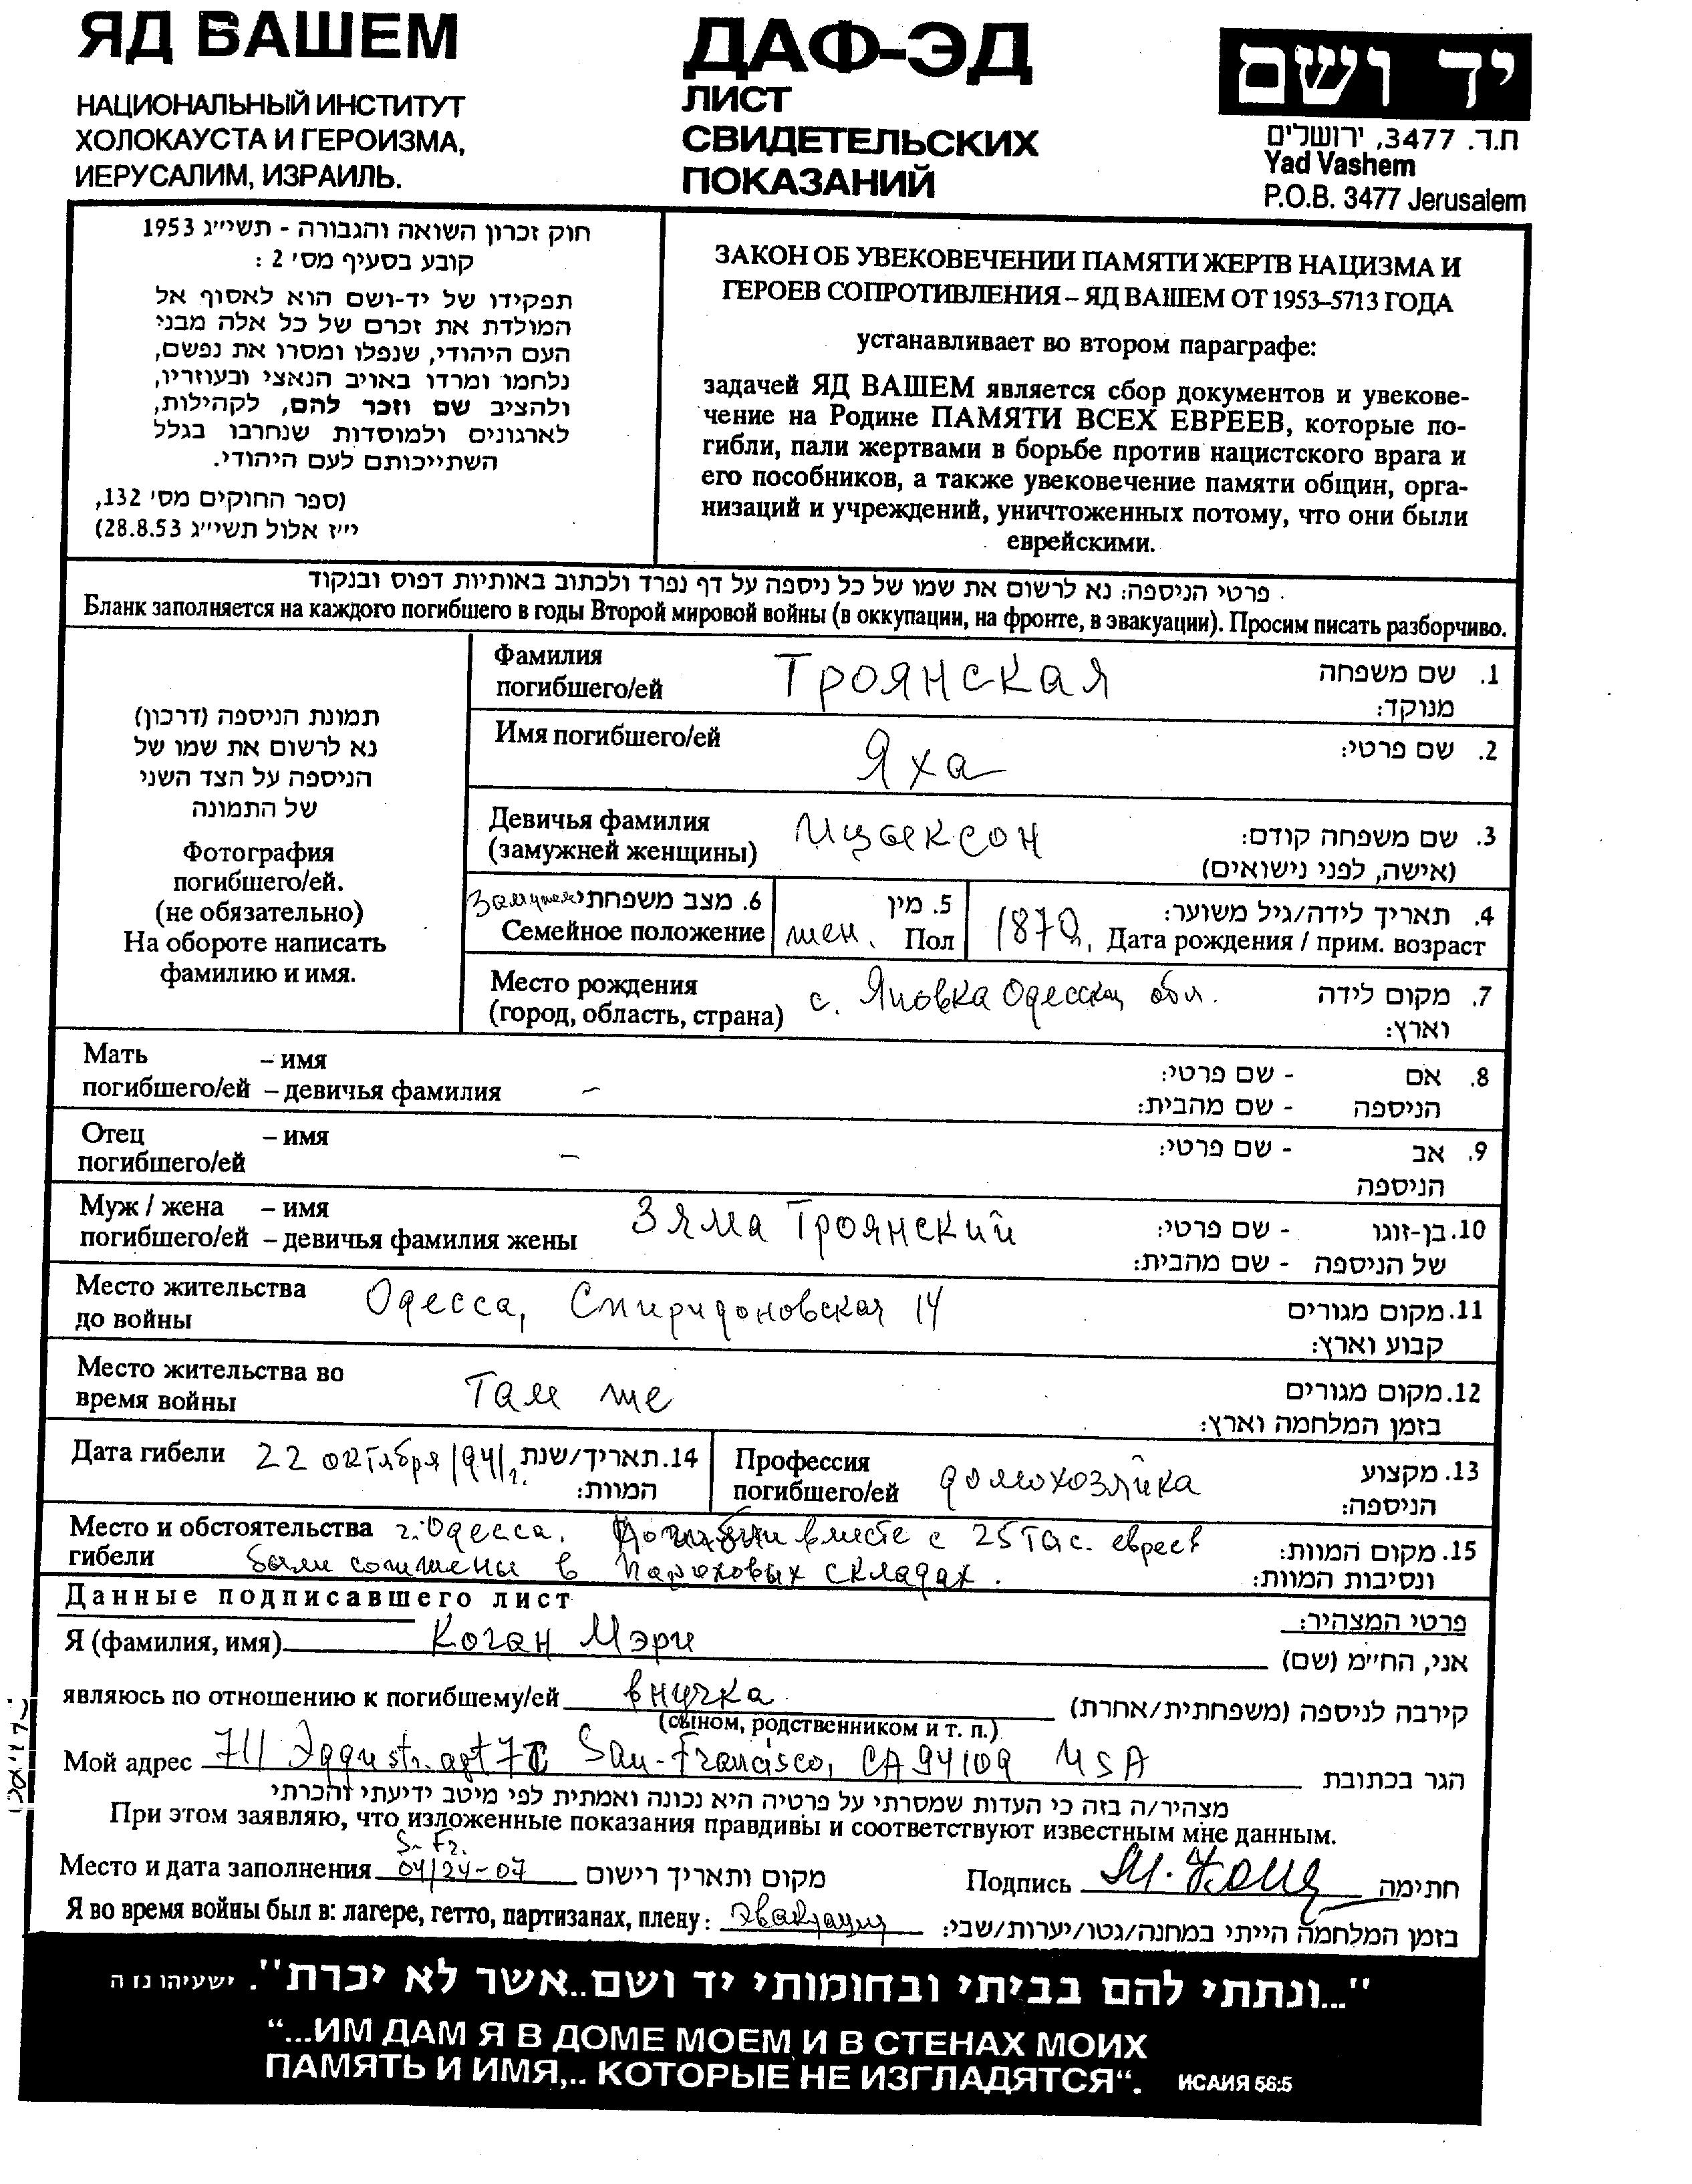 ЯД ВАШЕМ
НАЦИОНАЛЬНЫЙ ИНСТИТУТ
ХОЛОКАУСТА И ГЕРОИЗМА,
ИЕРУСАЛИМ, ИЗРАИЛЬ.
ДАФ-ЭД
ЛИСТ
СВИДЕТЕЛЬСКИХ
ПОКАЗАНИЙ
יד ושם
ת.ד. 3477, ירושלים
Yad Vashem
P.O.B. 3477 Jerusalem
חוק זכרון השואה והגבורה - תשי״ג 1953
קובע בסעיף מס׳ 2 :
תפקידו של יד-ושם הוא לאסוף אל
המולדת את זכרם של כל אלה מבני
העם היהודי, שנפלו ומסרו את נפשם,
נלחמו ומרדו באויב הנאצי ובעוזריו,
ולהציב שם וזכר להם, לקהילות,
לארגונים ולמוסדות שנחרבו בגלל
השתייכותם לעם היהודי.
(ספר החוקים מס׳ 132,
י״ז אלול תשי״ג 28.8.53)
ЗАКОН ОБ УВЕКОВЕЧЕНИИ ПАМЯТИ ЖЕРТВ НАЦИЗМА И
ГЕРОЕВ СОПРОТИВЛЕНИЯ – ЯД ВАШЕМ ОТ 1953–5713 ГОДА
устанавливает во втором параграфе:
задачей ЯД ВАШЕМ является сбор документов и увекове-
чение на Родине ПАМЯТИ ВСЕХ ЕВРЕЕВ, которые по-
гибли, пали жертвами в борьбе против нацистского врага и
его пособников, а также увековечение памяти общин, орга-
низаций и учреждений, уничтоженных потому, что они были
еврейскими.
פרטי הניספה: נא לרשום את שמו של כל ניספה על דף נפרד ולכתוב באותיות דפוס ובנקוד
Бланк заполняется на каждого погибшего в годы Второй мировой войны (в оккупации, на фронте, в эвакуации). Просим писать разборчиво.
תמונת הניספה (דרכון)
נא לרשום את שמו של
הניספה על הצד השני
של התמונה
Фотография
погибшего/ей.
(не обязательно)
На обороте написать
фамилию и имя.
Фамилия
погибшего/ей Троянская 1. שם משפחה
מנוקד:
Имя погибшего/ей Яха 2. שם פרטי:
Девичья фамилия
(замужней женщины) Ицыексон 3. שם משפחה קודם:
(אישה, לפני נישואים)
Замужем 6. מצב משפחתי
Семейное положение
5. מין
жен. Пол
4. תאריך לידה/גיל משוער:
1870, Дата рождения / прим. возраст
Место рождения
(город, область, страна) с. Яновка Одесская обл. 7. מקום לידה
וארץ:
Мать – имя
погибшего/ей – девичья фамилия – 8. אם - שם פרטי:
הניספה - שם מהבית:
Отец – имя
погибшего/ей – 9. אב - שם פרטי:
הניספה
Муж / жена – имя
погибшего/ей – девичья фамилия жены Зяма Троянский 10. בן-זוגו - שם פרטי:
של הניספה - שם מהבית:
Место жительства
до войны Одесса, Спиридоновская 14 11. מקום מגורים
קבוע וארץ:
Место жительства во
время войны Там же 12. מקום מגורים
בזמן המלחמה וארץ:
Дата гибели 22 октября 1941 г. 14. תאריך/שנת
המוות:
Профессия
погибшего/ей домохозяйка 13. מקצוע
הניספה:
Место и обстоятельства г. Одесса. Погибли вместе с 25 тыс. евреев 15. מקום המוות:
гибели были сожжены в пороховых складах. ונסיבות המוות:
Данные подписавшего лист פרטי המצהיר:
Я (фамилия, имя) Коган Мэри אני, הח״מ (שם)
являюсь по отношению к погибшему/ей внучка קירבה לניספה (משפחתית/אחרת)
(сыном, родственником и т. п.)
Мой адрес 711 Eddy str. apt 7C San-Francisco, CA 94109 USA הגר בכתובת
מצהיר/ה בזה כי העדות שמסרתי על פרטיה היא נכונה ואמתית לפי מיטב ידיעתי והכרתי
При этом заявляю, что изложенные показания правдивы и соответствуют известным мне данным.
S-Fr.
Место и дата заполнения 04/24-07 מקום ותאריך רישום Подпись חתימה
Я во время войны был в: лагере, гетто, партизанах, плену: эвакуация בזמן המלחמה הייתי במחנה/גטו/יערות/שבי:
"...ונתתי להם בביתי ובחומותי יד ושם..אשר לא יכרת". ישעיהו נז ה
“...ИМ ДАМ Я В ДОМЕ МОЕМ И В СТЕНАХ МОИХ
ПАМЯТЬ И ИМЯ,.. КОТОРЫЕ НЕ ИЗГЛАДЯТСЯ“. ИСАИЯ 56:5